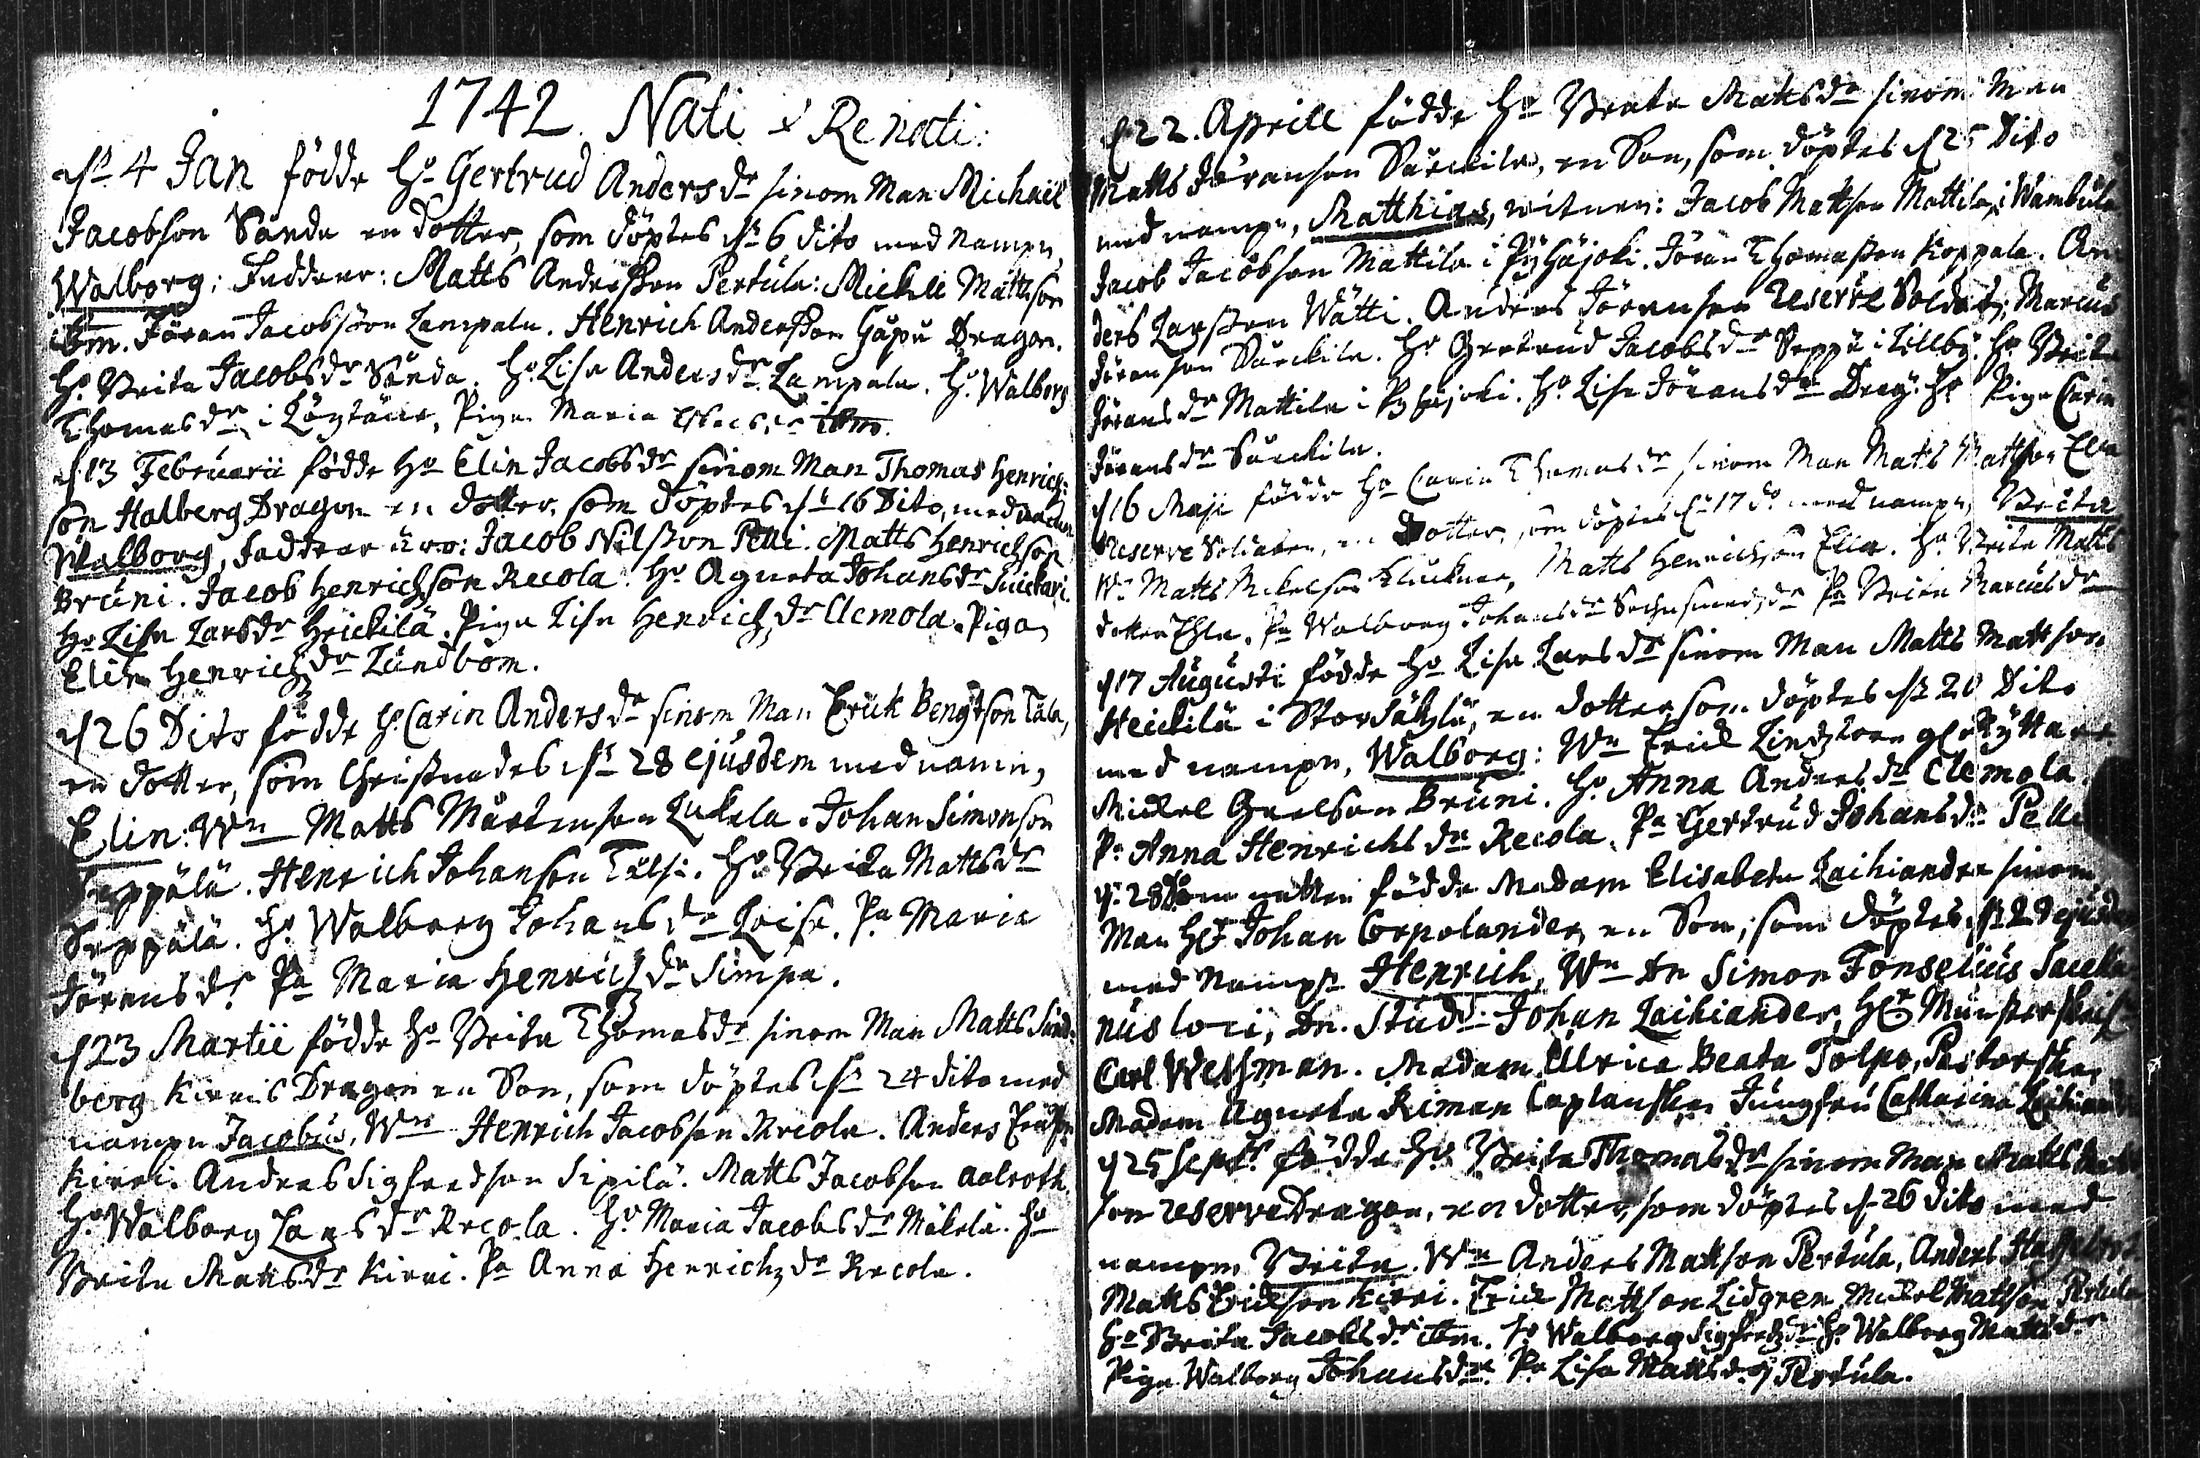 1742. Nati & Renati:
d. 4 Jan födde Ho Gertrud Andersdr sinom Man Michaël
Jacobson Sanda en dotter, som döptes d. 6 dito med Nampn,
Walborg; Faddrar: Matts Andersson Pertula: Mickell Mattson
ibm. Jöran Jacobsson Lampala. Henrich Andersson Gåpu Dragon.
Ho Brita Jacobsdr Sanda. Ho Lisa Andersdr Lampala. Ho Walborg
Thomasdr i Pigan Maria ibm.
d 13 Februarii födde Ho Elin Jacobsdr sinom Man Thomas Henrich:
son Halberg Dragon en dotter, som döptes d. 16 Dito, med nampn
Walborg, Faddrar äro: Jacob Nilsson Pelli. Matts Henrichson
Bruni. Jacob Henrichson Recola. Ho Agneta Johansdr Suickari.
Ho Lisa Larsdr Heickilä. Piga Lisa Henrichzdr Clemola. Piga
Elin Henrichzdr Lundbom.
d 26 Dito födde H. Carin Andersdr sinom Man Erick Bengtson Tala,
en dotter, som Christnades d. 28 ejusdem med namn,
Elin: Wn Matts Mårtenson Luckala. Johan Simonson
Seppälä. Henrich Johanson Ho Brita Mattsdr
Seppälä. Ho Walborg Johansdr Loisa. Pa Maria
Jöransdr Pa Maria Henrichzdr Simpa.
d 23 Martii födde Ho Brita Thomasdr sinom Man Matts Sund-
berg Kirri Dragon en Son, som döptes d. 24 dito med
nampn Jacobus, Wn Henrich Jacobson Recola. Anders
Kirri. Andreas Sigfredson Sipilä. Matts Jacobson Aalroth.
Ho Walborg Larsdr Recola. Ho Maria Jacobsdr Mäkelä. Ho
Brita Mattsdr Kirri. Pa Anna Henrichzdr Recola.
d 22. Aprill födde Ho Beata Mattsdr sinom Man
Matts Jöranson Sarckila, en Son, som döptes d 25 Dito
med nampn, Matthias, witnen: Jacob Mattson Mattila i Wambula
Jacob Jacobson Mattila i Pyhäjoki. Jöran Thomasson Koppala. An-
ders Larsson Wätti. Anders Jöranson Reserve Soldat; Marcus
Jöranson Sarckila. Ho Gertrud Jacobsdr Seppä i Ho Brita
Jöransdr Mattila i Pyhäjoki. Ho Lisa Jöransdr Drag. Piga Carin
Jöransdr Sarckila.
d 16 Maji födde Ho Carin Thomasdr sinom Man Matts Mattson
Reserve Soldaten, en Dotter, som döptes d. 17 do med nampn, Brita
Wn Matts Mickelson Matts Henrichson Ho Brita Matts
dotter Pa Walborg Johansdr Pa Brita Marcusdr
d 17 Augusti födde Ho Lisa Larsdr sinom Man Matts Mattson
Heickilä i en dotter, som döptes d. 20 Dito
med nampn, Walborg: Wn Erick
Mickel Bruni. Ho Anna Andersdr Clemola.
Pa Anna Henrichsdr Recola. Pa Gertrud Johansdr Pelli
d. 28 om natten födde Madam Elisabeta Laihiander sinom
Man Hr Johan Corpolander, en Son, som döptes d. 29
med Nampn Henrich, Wn Dn Simon Fonselius Sacella-
nus loci, Dn. Stud: Johan Laihiander, Hr
Carl Welsman. Madam Ulrica Beata Polpo, Pastorskan
Madam Agneta Riman Caplanskan Jungfru Catharina
d 25 Sept. födde Ho Brita Thomasdr sinom Man Matts
son reserve Dragon, en dotter, som döptes d. 26 dito med
nampn, Brita. Wn Anders Mattson Pertula, Anders
Matts Erickson Kirri. Erick Mattson Lidgren, Mickel Mattson Pertula
Ho Brita Jacobsdr ibm. Ho Walborg Sigfredzdr Ho Walborg Mattsdr
Piga Walborg Johansdr. Pa Lisa Mattsdr Pertula.